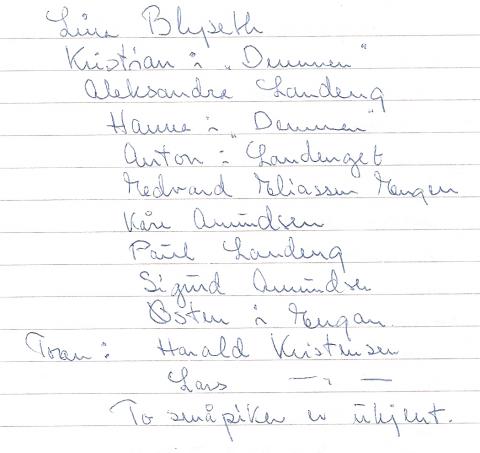 Line Blyseth
Kristian i „Demmen“
Aleksandra Landeng
Hanna i „Demmen“
Anton i Landenget
Medvard Eliassen Mengen
Kåre Amundsen
Paul Landeng
Sigurd Amundsen
Østen i Mengan.
Foran: Harald Kristensen
Lars — „ —
To småpiker er ukjent.